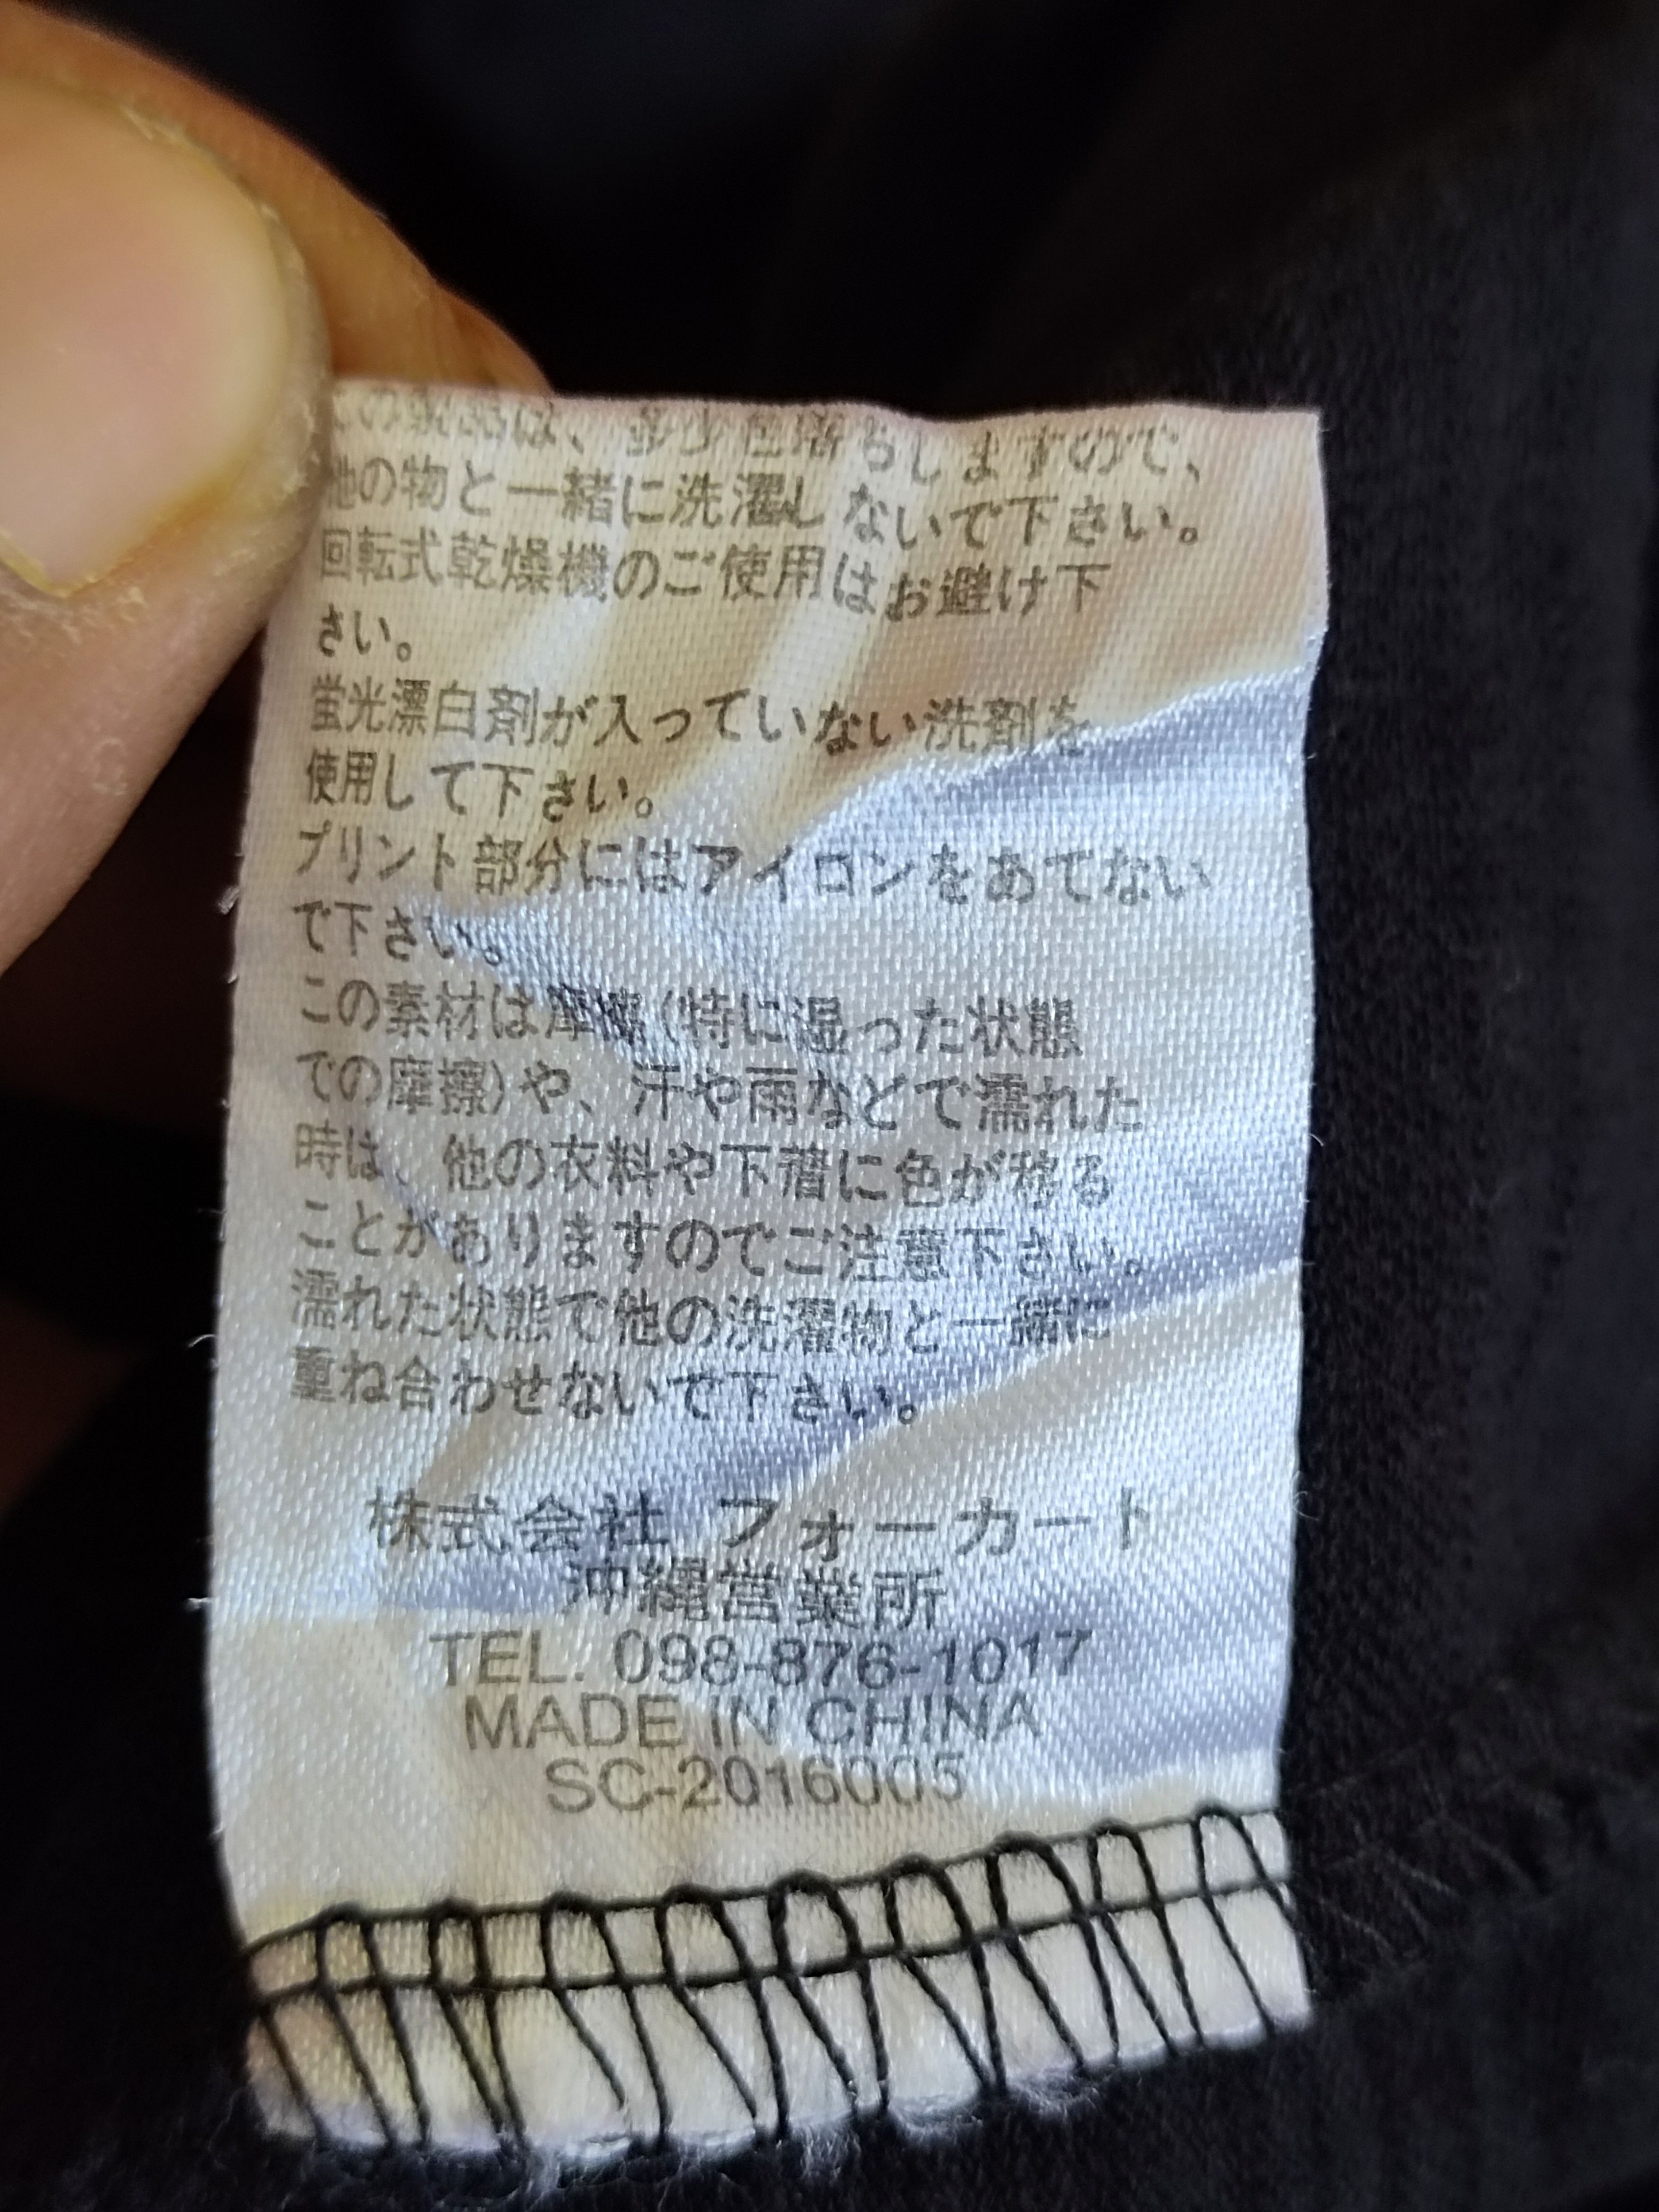 この製品は、多少色落ちしますので、
他の物と一緒に洗濯しないで下さい。
回転式乾燥機のご使用はお避け下
さい。
蛍光漂白剤が入っていない洗剤を
使用して下さい。
プリント部分にはアイロンをあてない
で下さい。
この素材は摩擦(特に湿った状態
での摩擦)や、汗や雨などで濡れた
時は、他の衣料や下着に色が移る
ことがありますのでご注意下さい。
濡れた状態で他の洗濯物と一緒に
重ね合わせないで下さい。
株式会社 フォーカート
沖縄営業所
TEL. 098-876-1017
MADE IN CHINA
SC-2016005